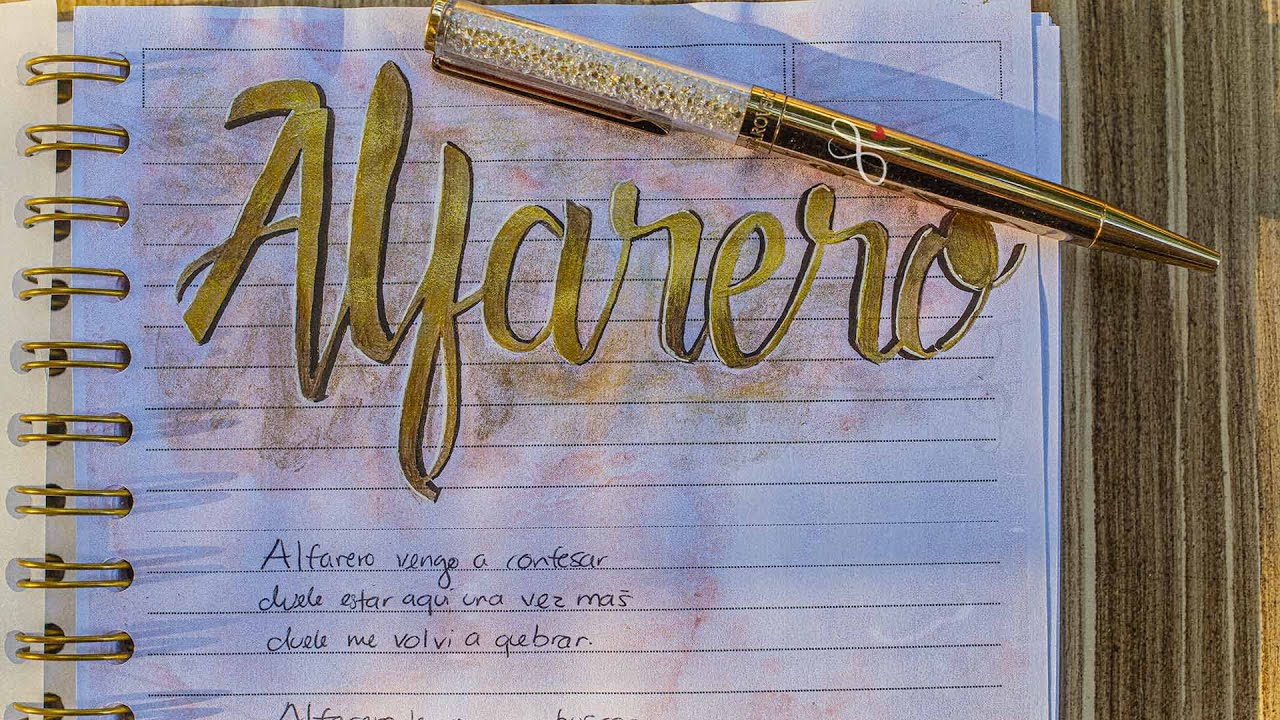 Alfarero
Alfarero vengo a confesar
duele estar aquí una vez más
duele me volvi a quebrar.
Alfarero